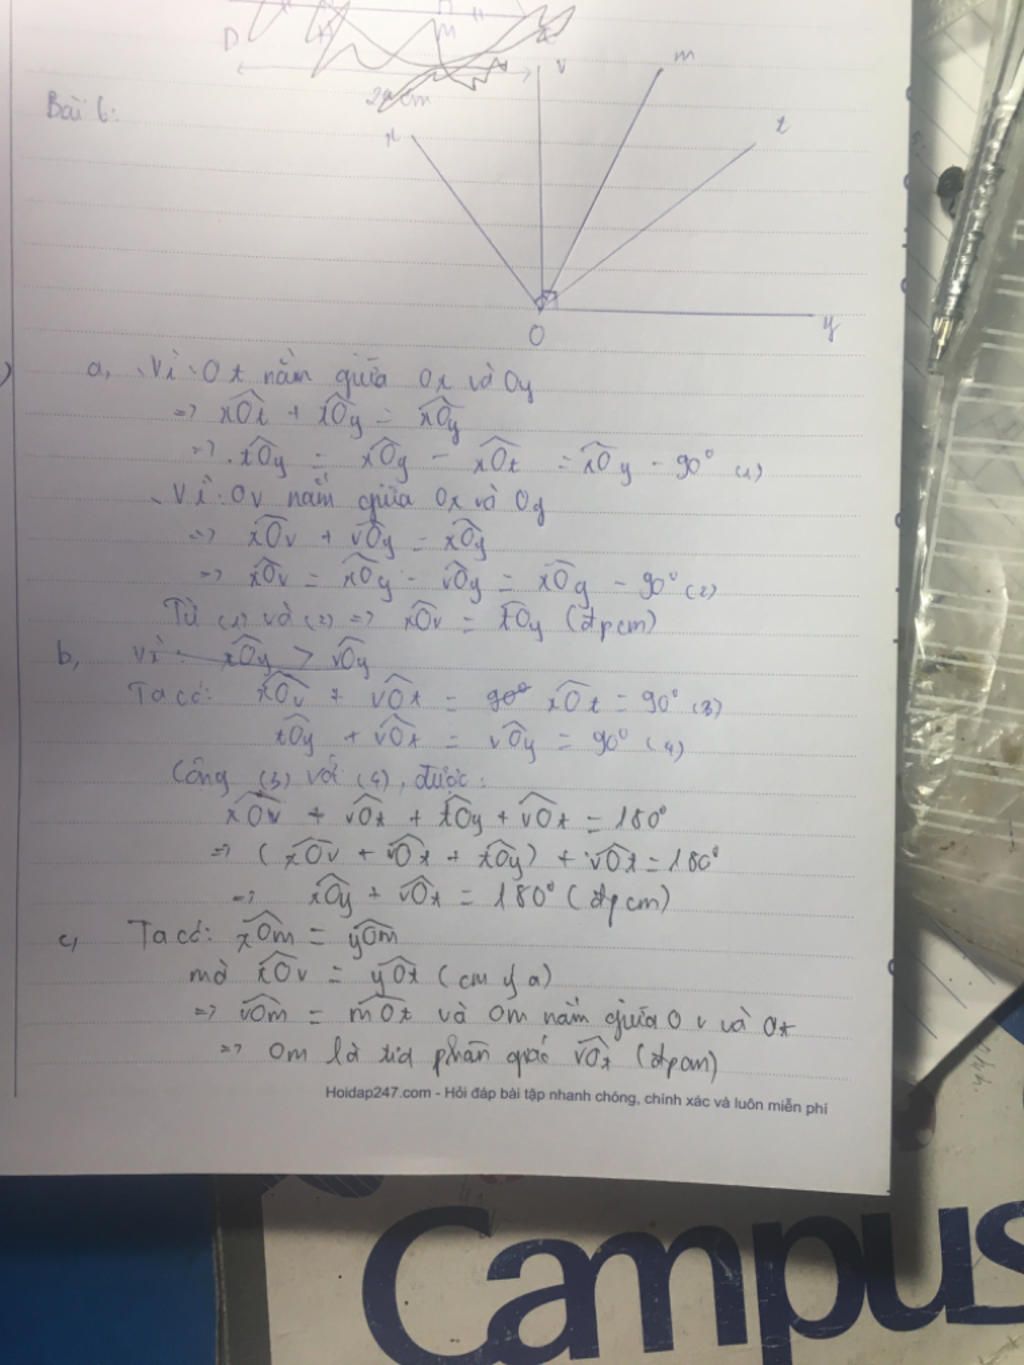 D M
V m
Bài 6: x t
O y
a, Vì Ot nằm giữa Ox và Oy
=> xOt + tOy = xOy
=> tOy = xOy - xOt = xOy - 90° (1)
Vì Ov nằm giữa Ox và Oy
=> xOv + vOy = xOy
=> xOv = xOy - vOy = xOy - 90° (2)
Từ (1) và (2) => xOv = tOy (đpcm)
b, Vì: xOy > vOy
Ta có: xOv + vOt = 90° xOt = 90° (3)
tOy + vOt = vOy = 90° (4)
Cộng (3) với (4), được:
xOv + vOt + tOy + vOt = 180°
=> (xOv + vOt + tOy) + vOt = 180°
=> xOy + vOt = 180° (đpcm)
c, Ta có: xOm = yOm
mà xOv = yOt (cm ý a)
=> vOm = mOt và Om nằm giữa Ov và Ot
=> Om là tia phân giác vOt (đpcm)
Hoidap247.com - Hỏi đáp bài tập nhanh chóng, chính xác và luôn miễn phí
Campus